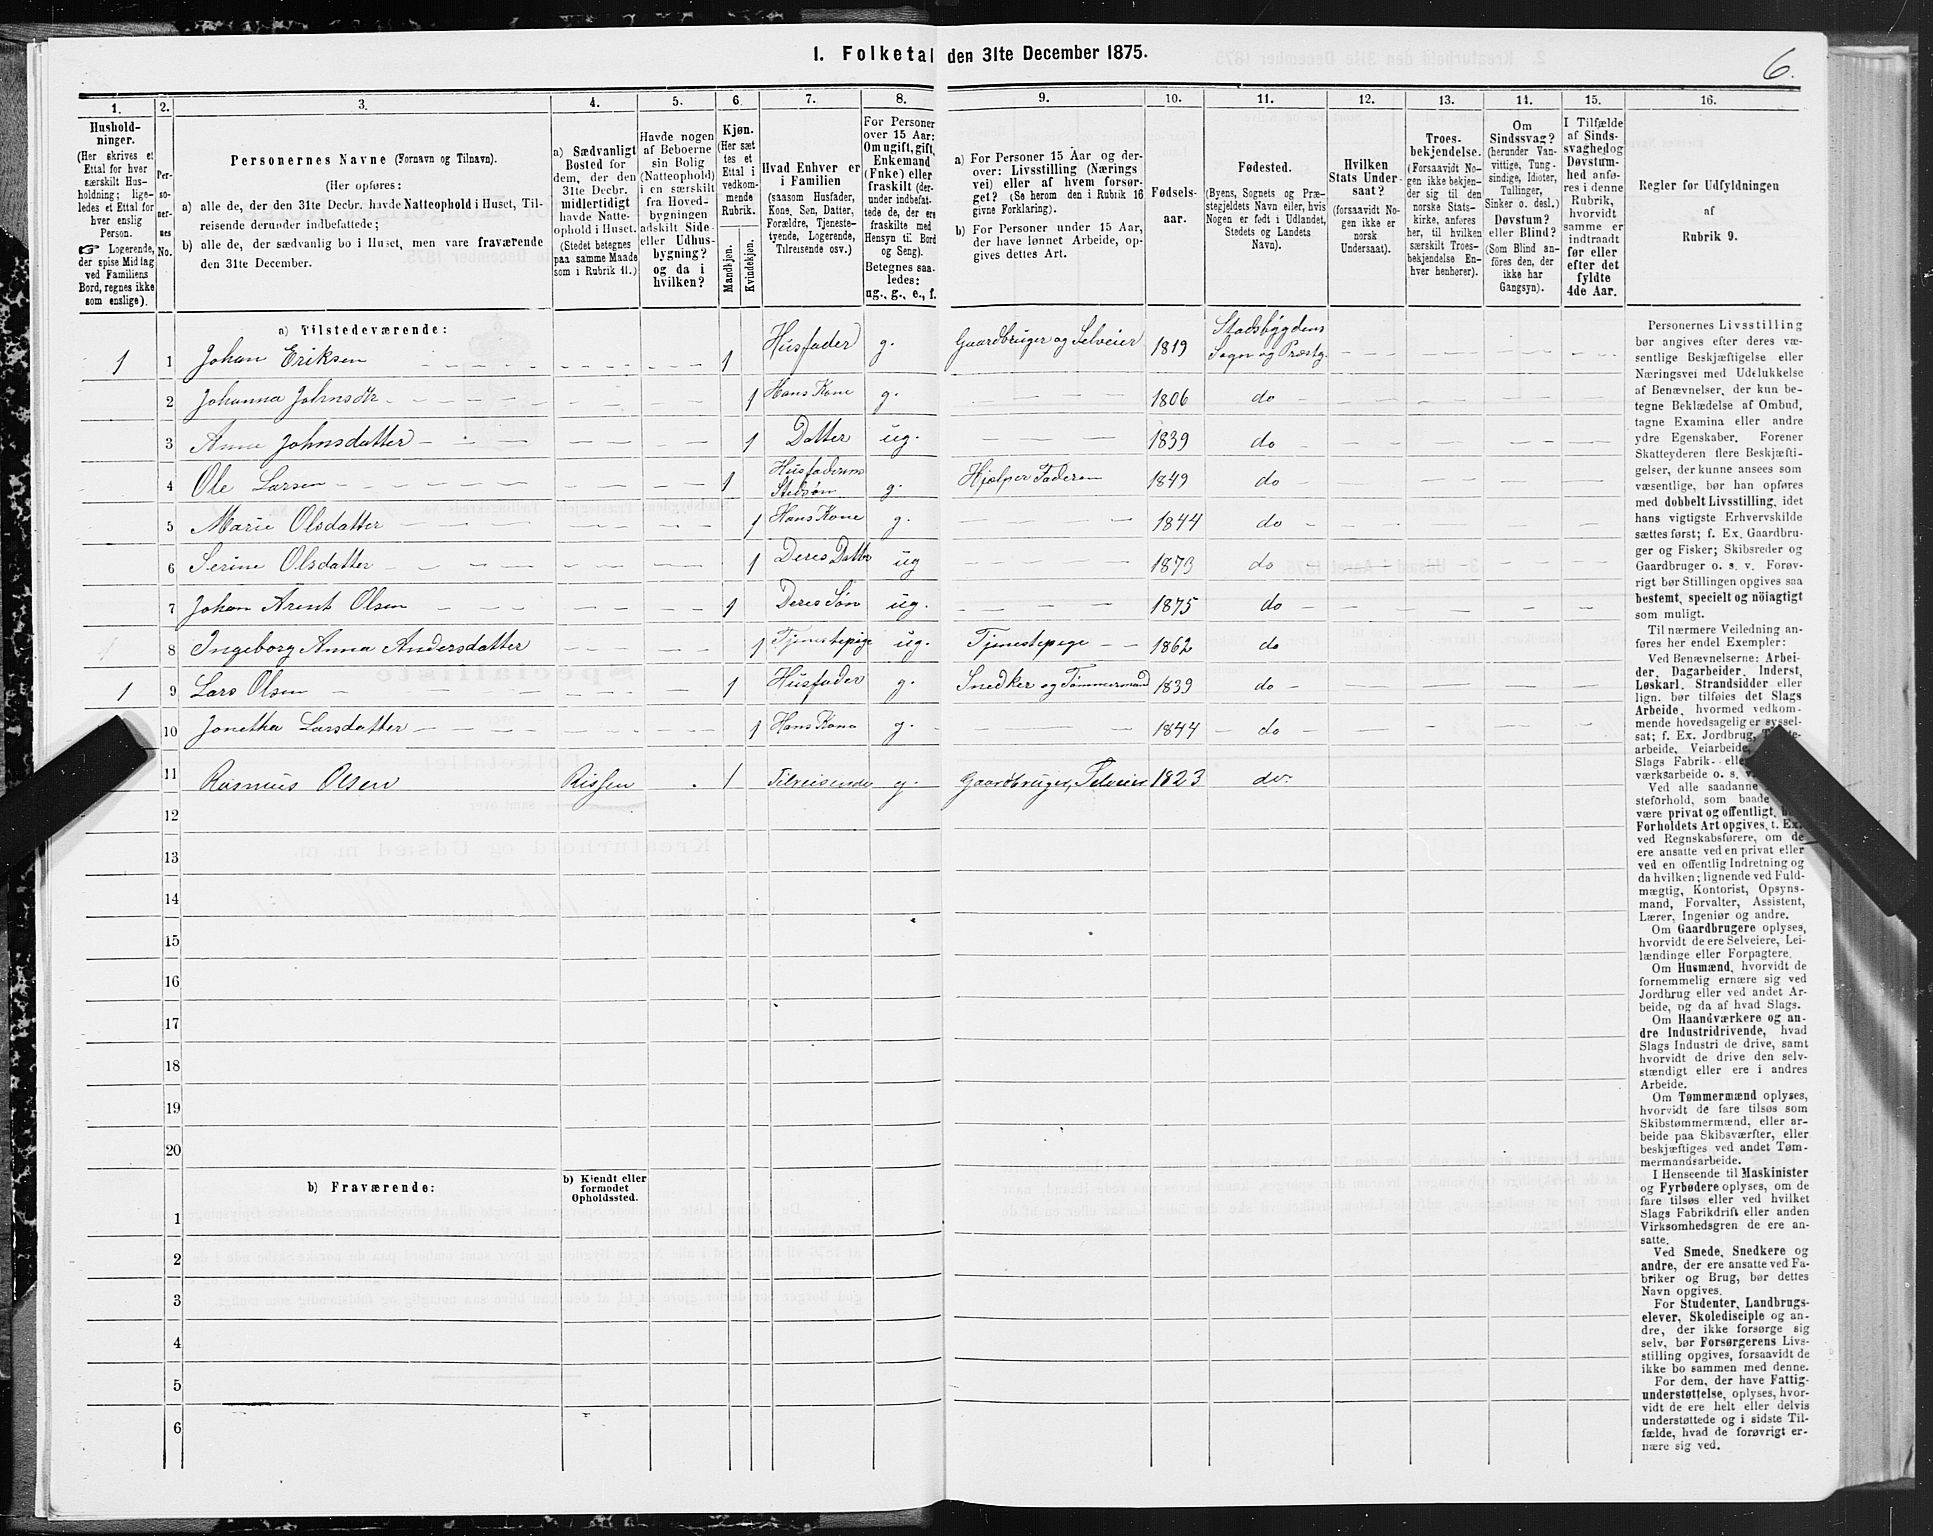 1. Folketal den 31te December 1875.
6.
1. 2. 3. 4. 5. 6. 7. 8. 9. 10. 11. 12. 13. 14. 15. 16.
Hushold-
ninger.
(Her skrives et
Ettal for hver
særskilt Hus-
holdning; lige-
ledes et Ettal for
hver enslig
Person.
☞ Logerende,
der spise Middag
ved Familiens
Bord, regnes ikke
som enslige).
Per-
so-
ner-
nes
No.
Personernes Navne (Fornavn og Tilnavn).
(Her opføres:
a) alle de, der den 31te Decbr. havde Natteophold i Huset, Til-
reisende derunder indbefattede;
b) alle de, der sædvanlig bo i Huset, men vare fraværende
den 31te December.
a) Sædvanligt
Bosted for
dem, der den
31te Decbr.
midlertidigt
havde Natte-
ophold i Huset.
(Stedet betegnes
paa samme Maade
som i Rubrik 11.)
Havde nogen
af Beboerne
sin Bolig
(Natteophold)
i en særskilt
fra Hoved-
bygningen
adskilt Side-
eller Udhus-
bygning?
og da i
hvilken?
Kjøn.
(Her sæt-
tes et
Ettal i
vedkom-
mende
Rubrik.
Mandkjøn.
Kvindekjøn.
Hvad Enhver er
i Familien
(saasom Husfader,
Kone, Søn, Datter,
Forældre, Tjeneste-
tyende, Logerende,
Tilreisende osv.)
For Personer
over 15 Aar:
Om ugift, gift,
Enkemand
(Enke) eller
fraskilt (der-
under indbefat-
tede de, der ere
fraskilte med
Hensyn til Bord
og Seng).
Betegnes saa-
ledes:
ug., g., e., f.
a) For Personer 15 Aar og der-
over: Livsstilling (Nærings-
vei) eller af hvem forsør-
get? (Se herom den i Rubrik 16
givne Forklaring).
b) For Personer under 15 Aar,
der have lønnet Arbeide, op-
gives dettes Art.
Fødsels-
aar.
Fødested.
(Byens, Sognets og Præ-
stegjeldets Navn eller, hvis
Nogen er født i Udlandet,
Stedets og Landets
Navn).
Hvilken
Stats Under-
saat?
(forsaavidt No-
gen ikke er
norsk
Undersaat).
Troes-
bekjendelse.
(Forsaavidt No-
gen ikke bekjen-
der sig til den
norske Stats-
kirke, anføres
her, til hvilken
særskilt Troes-
bekjendelse En-
hver henhører).
Om
Sindssvag?
(herunder Van-
vittige, Tung-
sindige, Idioter,
Tullinger,
Sinker o. desl.)
Døvstum?
eller Blind?
(Som Blind an-
føres den, der
ikke har
Gangsyn).
I Tilfælde
af Sinds-
svaghed og
Døvstum-
hed anfø-
res i denne
Rubrik,
hvorvidt
samme er
indtraadt
før eller
efter det
fyldte
4de Aar.
Regler for Udfyldningen
af
Rubrik 9.
a) Tilstedeværende:
1 1 Johan Eriksen 1 Husfader g. Gaardbruger og Selveier 1819 Stadsbygdens Sogn og Præstg.
2 Johanna Johnsdtr 1 Hans Kone g. 1806 do
3 Anna Johnsdatter 1 Datter ug. 1839 do
4 Ole Larsen 1 Husfaderens Stedsøn g. Hjælper Faderen 1849 do
5 Marie Olsdatter 1 Hans Kone g. 1844 do
6 Serine Olsdatter 1 Deres Datter ug 1873 do
7 Johan Arent Olsen 1 Deres Søn ug. 1875 do
1 8 Ingeborg Anna Andersdatter 1 Tjenestepige ug. Tjenestepige 1862 do
1 9 Lars Olsen 1 Husfader g. Snedker og Tømmermand 1839 do
10 Jonetha Larsdatter 1 Hans Kone g. 1844 do
11 Rasmus Olsen Rissen 1 Tilreisende g. Gaardbruger, Selveier 1823 do.
12
13
14
15
16
17
18
19
20
b) Fraværende:
b) Kjendt eller
formodet
Opholdssted.
1
2
3
4
5
6
Personernes Livsstilling
bør angives efter deres væ-
sentlige Beskjæftigelse eller
Næringsvei med Udelukkelse
af Benævnelser, der kun be-
tegne Beklædelse af Ombud,
tagne Examina eller andre
ydre Egenskaber. Forener
Skatteyderen flere Beskjæfti-
gelser, der kunne ansees som
væsentlige, bør han opføres
med dobbelt Livsstilling, idet
hans vigtigste Erhvervskilde
sættes først; f. Ex. Gaardbru-
ger og Fisker; Skibsreder og
Gaardbruger o. s. v. Forøv-
rigt bør Stillingen opgives saa
bestemt, specielt og nöiagtigt
som muligt.
Til nærmere Veiledning an-
føres her endel Exempler:
Ved Benævnelserne: Arbei-
der, Dagarbeider, Inderst,
Løskarl, Strandsidder eller
lign. bør tilføies det Slags
Arbeide, hvormed vedkom-
mende hovedsagelig er syssel-
sat; f. Ex. Jordbrug,
arbeide, Veiarbeide,
Slags Fabrik- eller
værksarbeide o. s. v.
Ved alle saadanne
steforhold, som baade
være privat og offentligt,
Forholdets Art opgives, t. Ex.
ved Regnskabsførere, om de
ere ansatte ved en privat eller
ved en offentlig Indretning og
da hvilken; lignende ved Fuld-
mægtig, Kontorist, Opsyns-
mand, Forvalter, Assistent,
Lærer, Ingeniør og andre.
Om Gaardbrugere oplyses,
hvorvidt de ere Selveiere, Lei-
lændinge eller Forpagtere.
Om Husmænd, hvorvidt de
fornemmelig ernære sig ved
Jordbrug eller ved andet Ar-
beide, og da af hvad Slags.
Om Haandværkere og an-
dre Industridrivende, hvad
Slags Industri de drive, samt
hvorvidt de drive den selv-
stændigt eller ere i andres
Arbeide.
Om Tømmermænd oplyses,
hvorvidt de fare tilsøs som
Skibstømmermænd, eller ar-
beide paa Skibsværfter, eller
beskjæftiges ved andet Tøm-
mermandsarbeide.
I Henseende til Maskinister
og Fyrbødere oplyses, om de
fare tilsøs eller ved hvilket
Slags Fabrikdrift eller anden
Virksomhedsgren de ere an-
satte.
Ved Smede, Snedkere og
andre, der ere ansatte ved Fa-
briker og Brug, bør dettes
Navn opgives.
For Studenter, Landbrugs-
elever, Skoledisciple og an-
dre, der ikke forsørge sig
selv, bør Forsørgerens Livs-
stilling opgives, forsaavidt de
ikke bo sammen med denne.
For dem, der have Fattig-
understøttelse, oplyses, hvor-
vidt de ere helt eller delvis
understøttede og i sidste Til-
fælde, hvad de forøvrigt er-
nære sig ved.